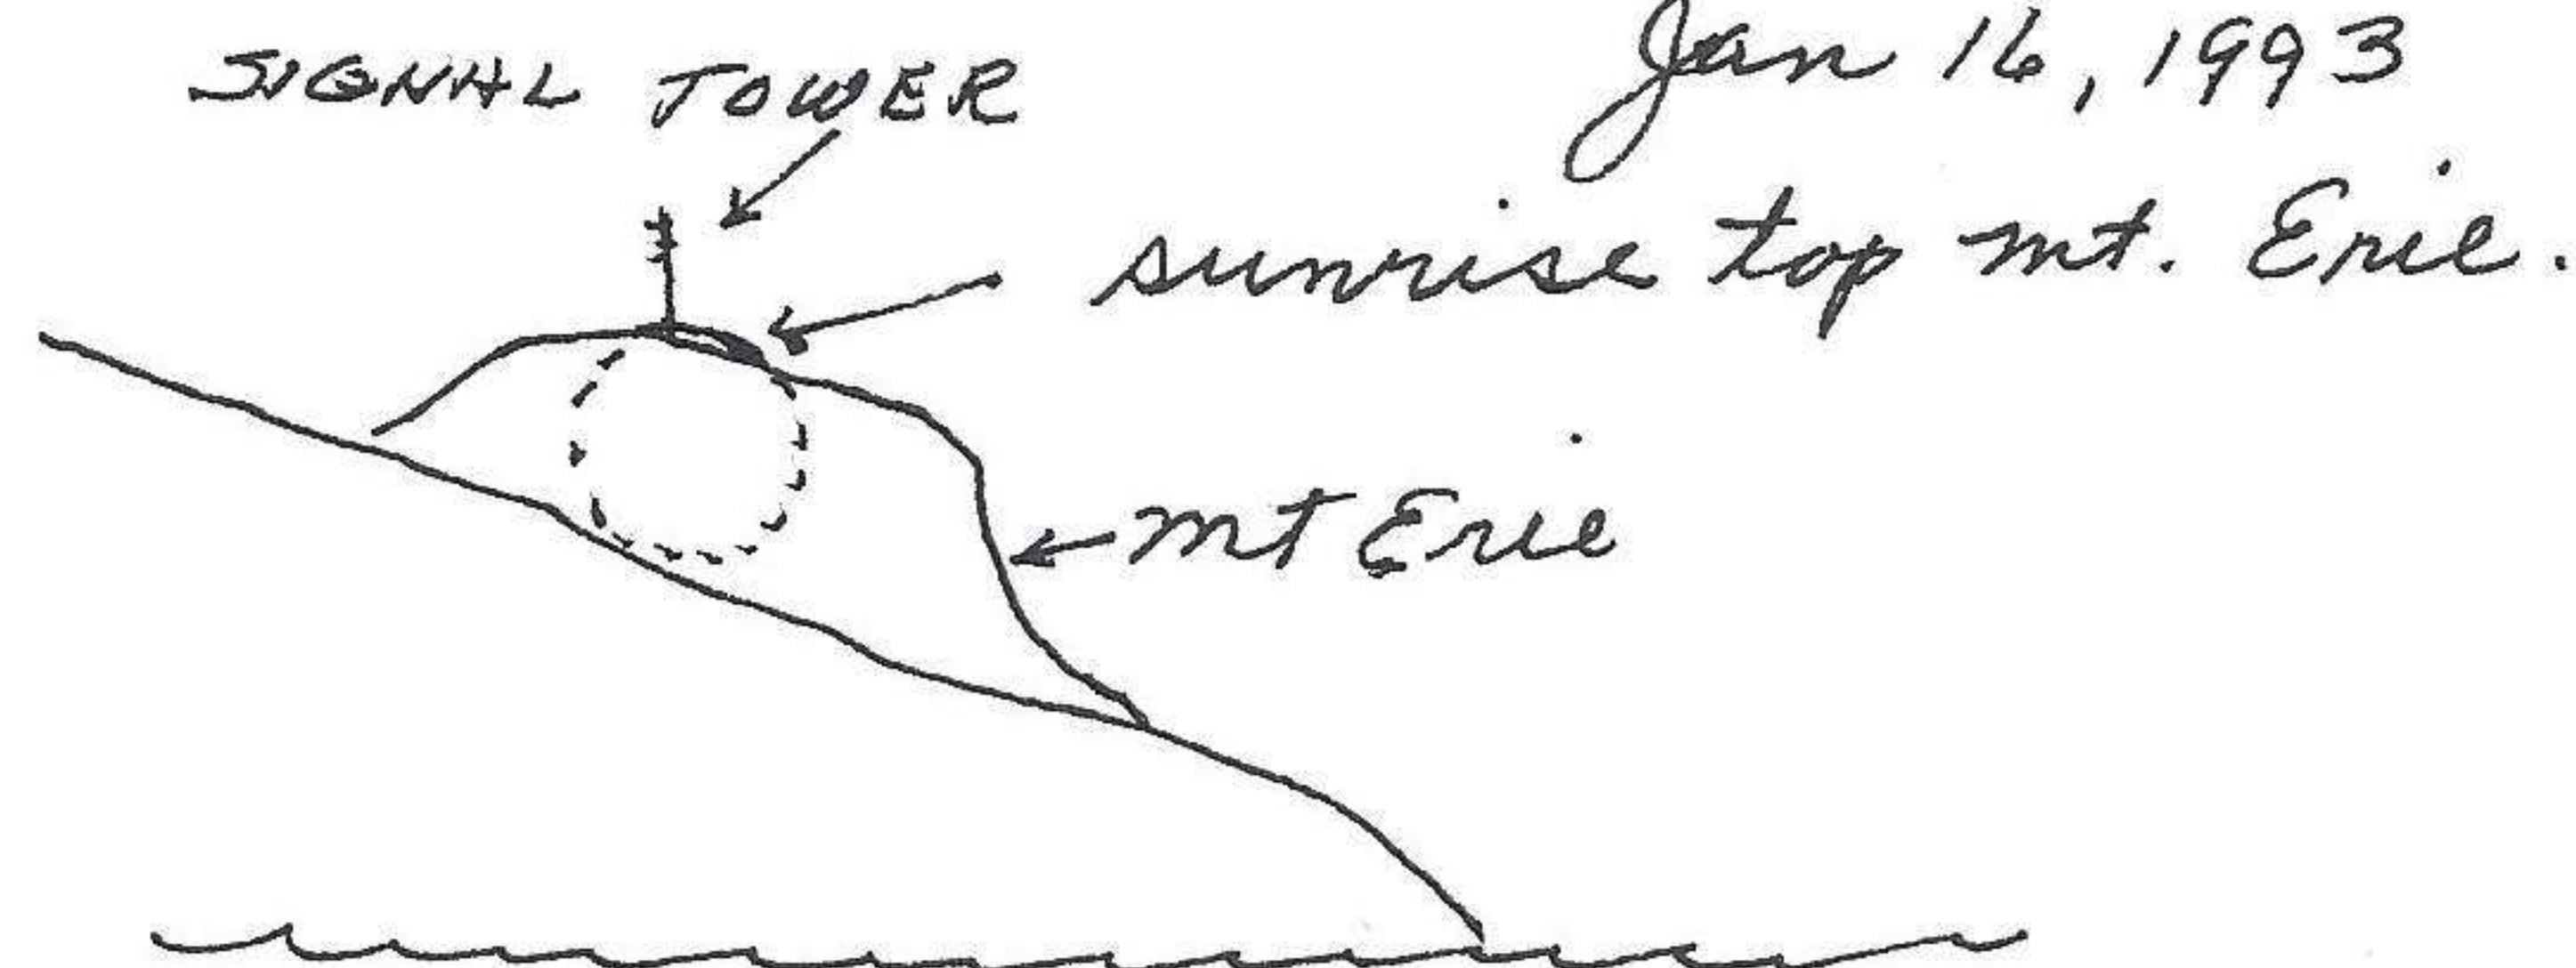 SIGNAL TOWER
Jan 16, 1993
sunrise top mt. Erie.
mt Erie